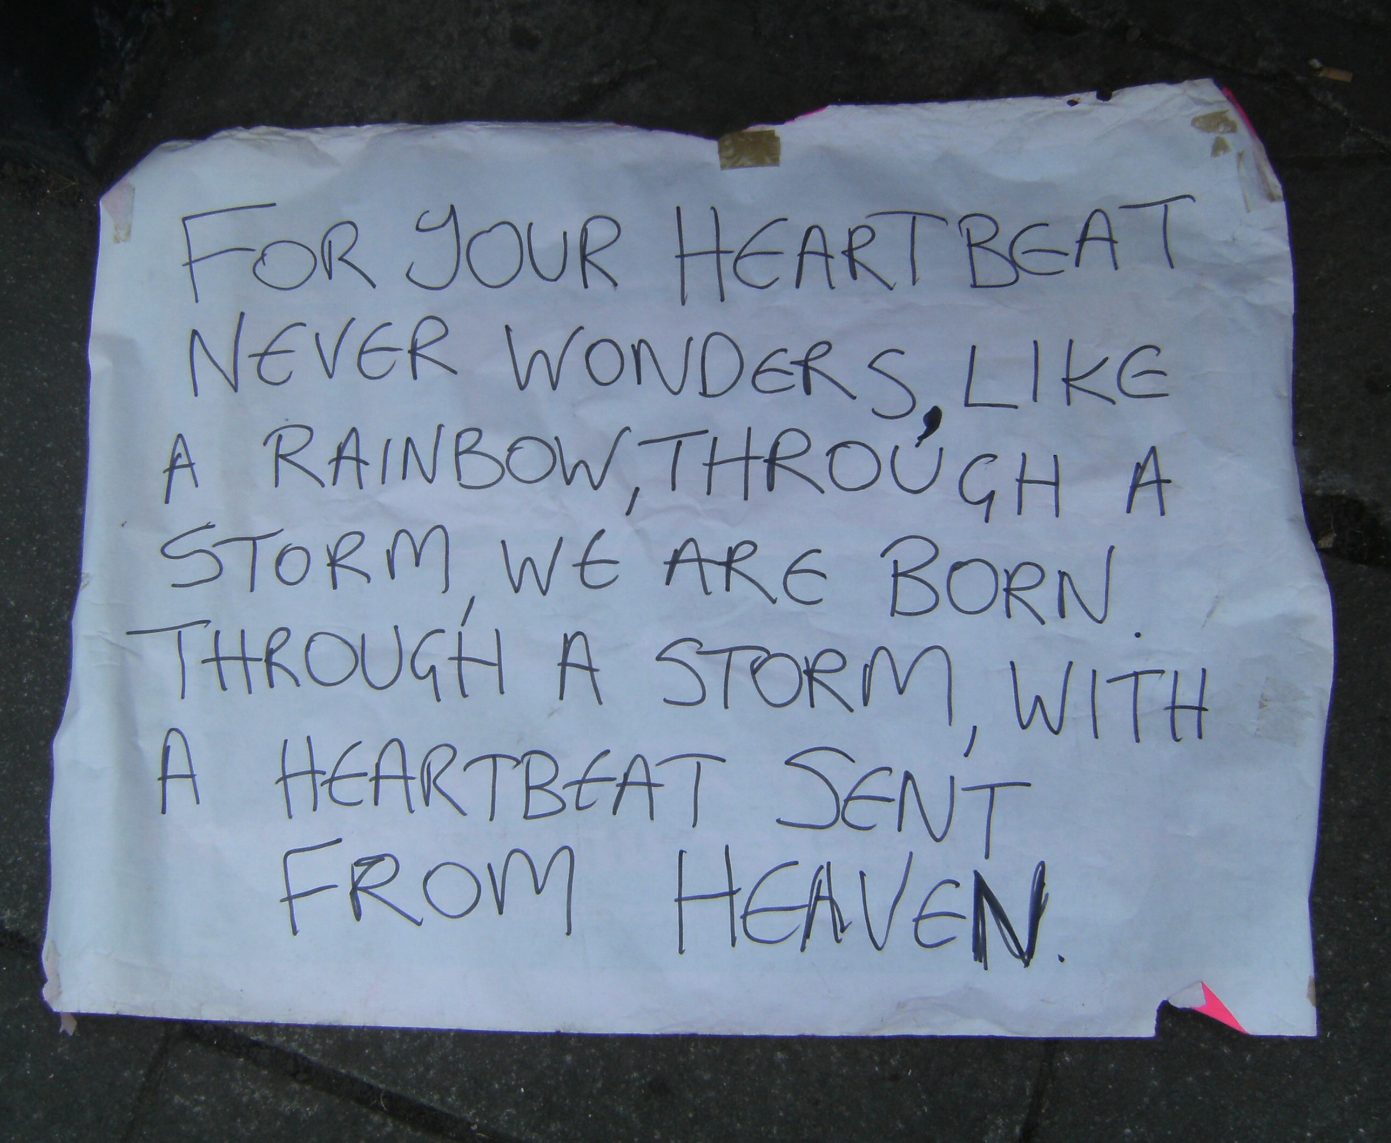 FOR YOUR HEARTBEAT
NEVER WONDERS, LIKE
A RAINBOW, THROUGH A
STORM, WE ARE BORN.
THROUGH A STORM, WITH
A HEARTBEAT SENT
FROM HEAVEN.